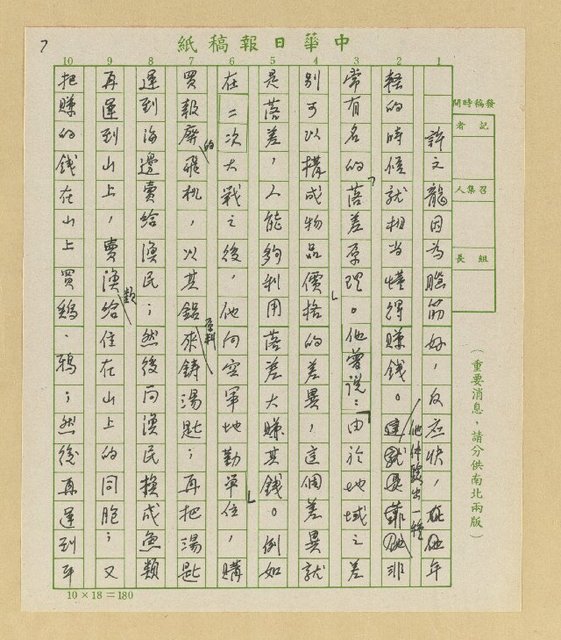 中華日報稿紙
7
1 2 3 4 5 6 7 8 9 10
發稿時間
記者
召集人
組長
（重要消息，請分供南北兩版）
許文龍因為腦筋好，反應快，在他年
輕的時候就相当懂得賺錢。他体驗出一種非
常有名的「落差原理」。他曾說：「由於地域之差
別可以構成物品價格的差異，這個差異就
是落差，人能夠利用落差大賺其錢。例如
在二次大戰之後，他向空軍地勤單位，購
買報廢的飛机，以其鋁原料來鑄湯匙；再把湯匙
運到海邊賣給漁民；然後向漁民換成魚類
再運到山上，賣漁獲給住在山上的同胞；又
把賺的錢在山上買鷄、鴨；然後再運到平
10×18=180